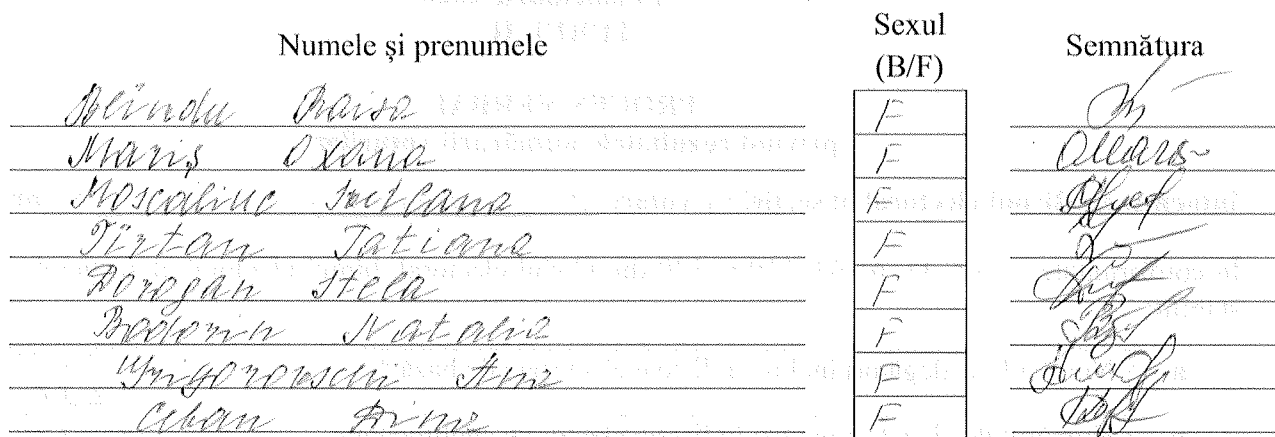 Numele și prenumele Sexul (B/F) Semnătura
Blîndu Raisa F
Mariș Oxana F
Moscaliuc Svetlana F
Tîrtan Tatiana F
Dorogan Stela F
Bodorin Natalia F
Grigorovschi Ana F
Ceban F